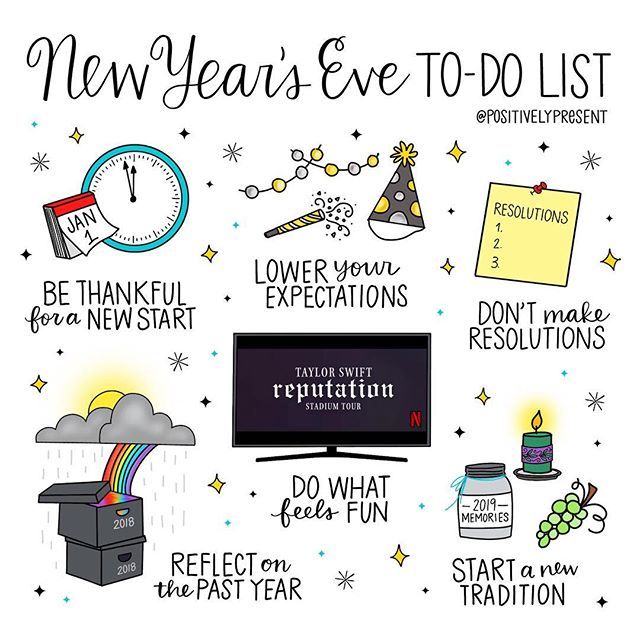 New Year's Eve TO-DO LIST
@POSITIVELYPRESENT
JAN
1
BE THANKFUL
for a NEW START
LOWER your
EXPECTATIONS
RESOLUTIONS
1.
2.
3.
DON'T make
RESOLUTIONS
2018
2018
REFLECT on
the PAST YEAR
TAYLOR SWIFT
reputation
STADIUM TOUR
N
DO WHAT
feels FUN
2019
MEMORIES
START a new
TRADITION